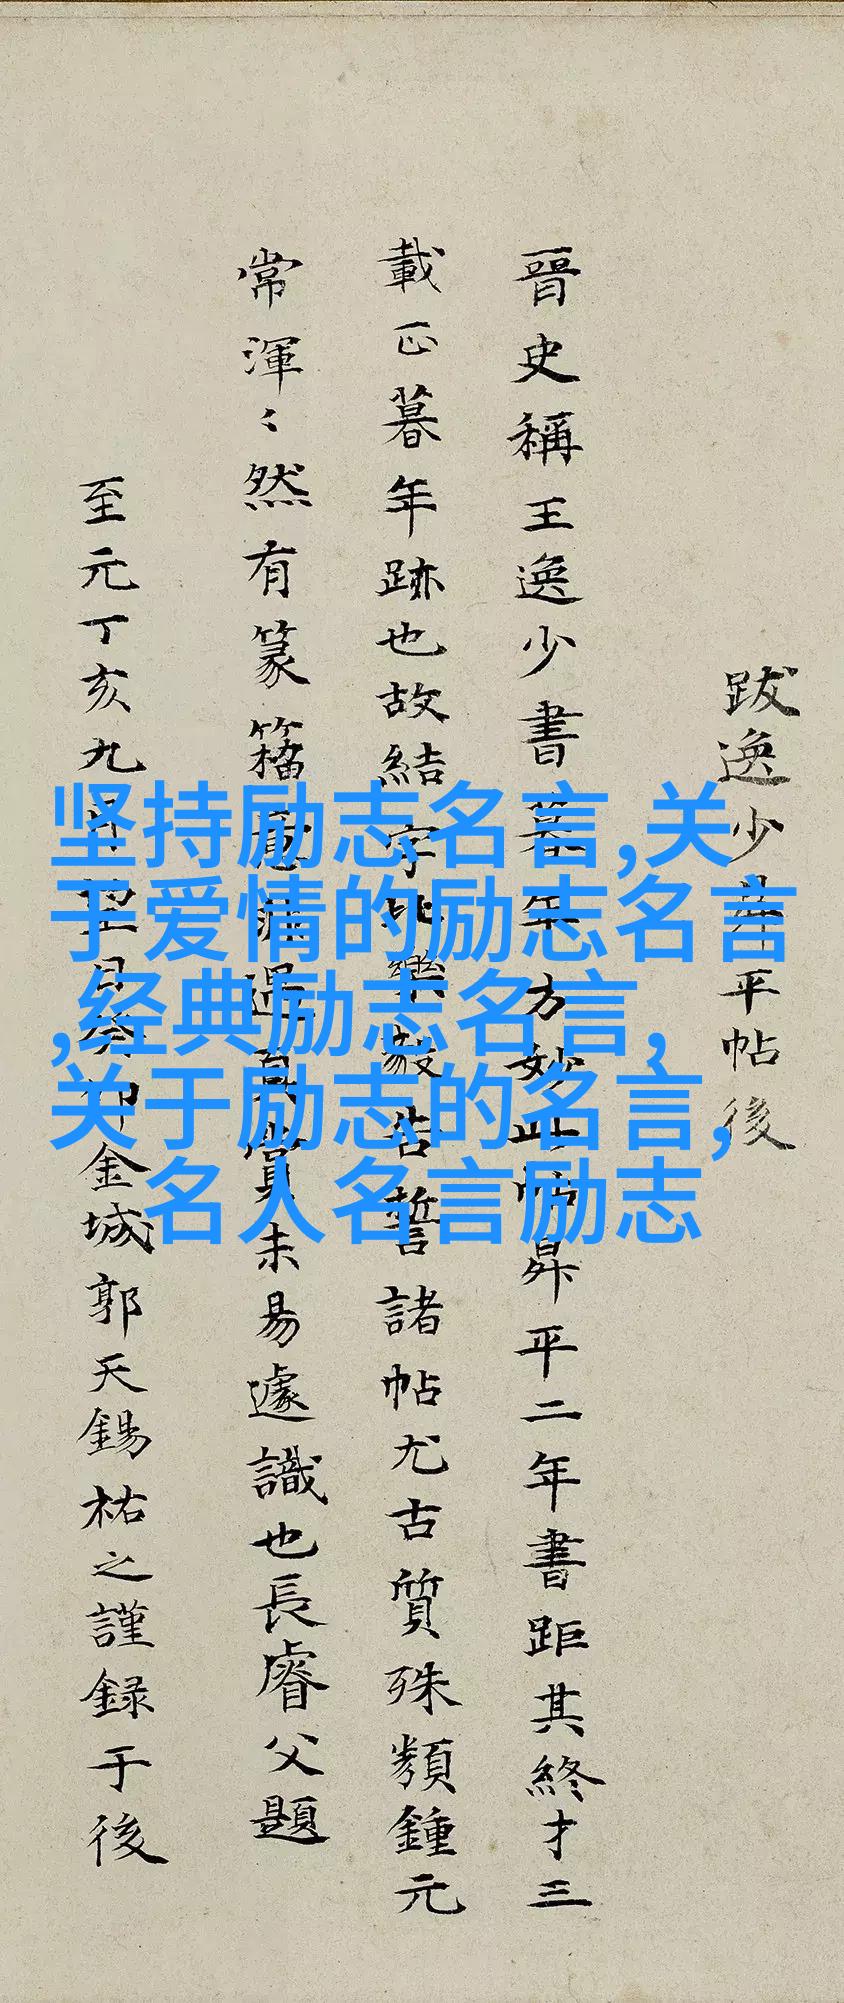 跋逸少昇平帖後
晉史稱王逸少書暮年方妙此帖昇平二年書距其終才三
載正暮年跡也故結字比樂毅告誓諸帖尤古質殊類鍾元
常渾〻然有篆籀意遇真賞未易遽識也長睿父題
至元丁亥九月望日癸卯金城郭天錫祐之謹録于後
坚持励志名言,关
于爱情的励志名言
,经典励志名言,
关于励志的名言,
名人名言励志